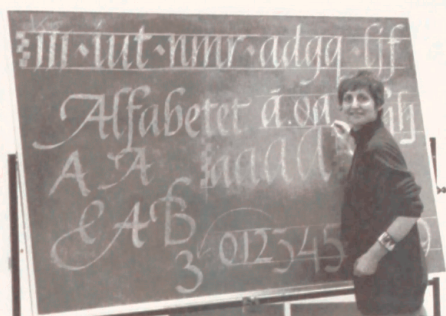 m·iut·nmr·adgq·ljf
Alfabetet a.oa
A A aaaa
& A B
3 012345